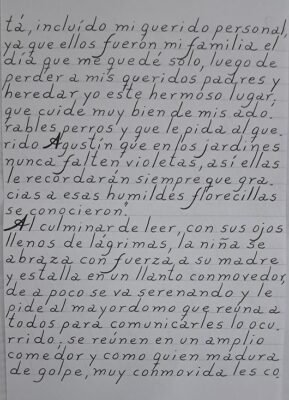 tá, incluído mi querido personal,
ya que ellos fueron mi familia el
día que me quedé solo, luego de
perder a mis queridos padres y
heredar yo este hermoso lugar,
que cuide muy bien de mis ado_
rables perros y que le pida al que_
rido Agustín que en los jardines
nunca falten violetas, así ellas
le recordarán siempre que gra_
cias a esas humildes florecillas
se conocieron."
Al culminar de leer, con sus ojos
llenos de lágrimas, la niña se
abraza con fuerza a su madre
y estalla en un llanto conmovedor,
de a poco se va serenando y le
pide al mayordomo que reúna a
todos para comunicarles lo ocu_
rrido; se reúnen en un amplio
comedor y como quien madura
de golpe, muy conmovida les co_